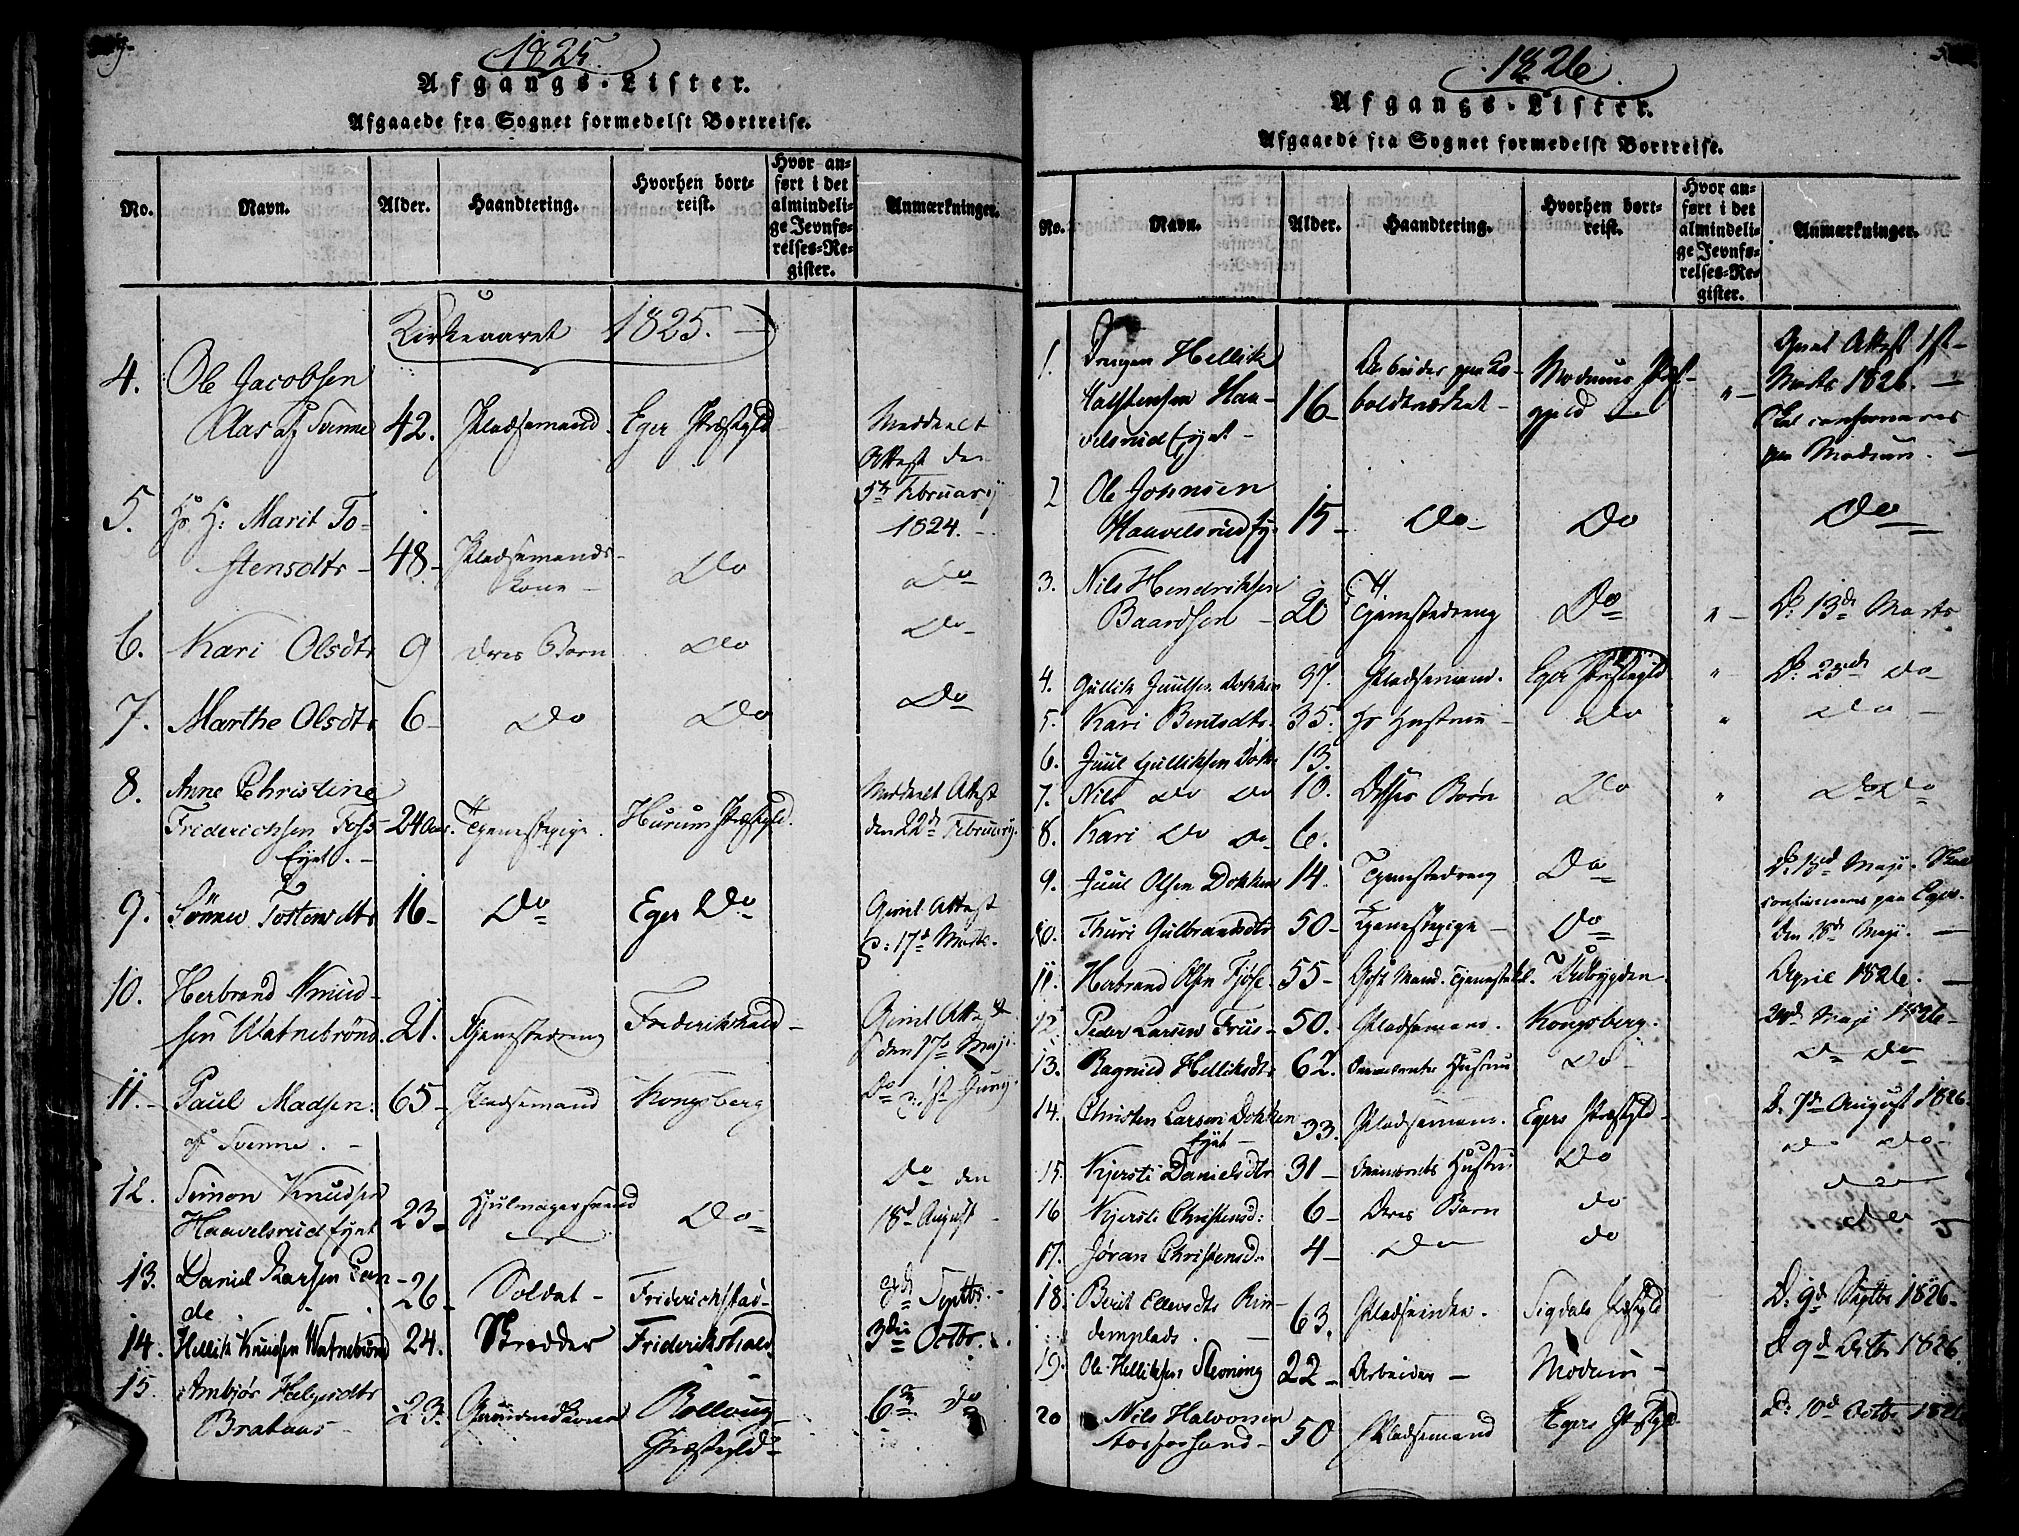 1825.
Afgangs-Lister.
Afgaaede fra Sognet formedelst Bortreise.
No.
Navn.
Alder.
Haandtering.
Hvorhen bort-
reist.
Hvor an-
ført i det
almindeli-
ge Jevnfø-
relses-Re-
gister.
Anmærkninger.
Kirkeaaret 1825.
4. Ole Jacobsen
Aas af Svenne 42. Pladsemand. Eger Præstgld
Meddeelt
Attest den
5te Februarij
1824.
5. Hs H: Marit To-
stensdtr 48 Pladsemands
kone Do Do
6. Kari Olsdtr 9 deres Børn Do Do
7. Marthe Olsdtr 6 Do Do Do
8. Anne Christine
Friderichsen Foss
Ejet. 24 Aar. Tjenestepige. Hurum Præstgld.
Meddeelt Attest
den 22de Februarij.
9. Sønnev Tostensdtr 16 Do Eger Do
Givet Attest
D: 17de Marts.
10. Herbrand Knud-
sen Watnebrønd. 21. Tjenestedreng Frederikshald
Givet Attest
den 17de Maji.
11. Paul Madsen 65 Pladsemand Kongsberg Do D: 1st Junij.
af Svenne.
12. Simon Knudsen
Haavelsrud Ejet 23 Hjulmagersvend Do
Do den
18de August
13. Daniel Larsen
de 26 Soldat Friderichstad Septbr.
14. Hellik Knudsen Watnebrønd 24. Skrædder Friderikshald 3die Octbr.
15. Ambjør Helgesdtr
Brataas 23. Rollaug
Præstegld 6te Do
1826.
Afgangs-Lister.
Afgaaede fra Sognet formedelst Bortreise.
No.
Navn.
Alder.
Haandtering.
Hvorhen bort-
reist.
Hvor an-
ført i det
almindeli-
ge Jevnfø-
relses-Re-
gister.
Anmærkninger.
1. Drengen Hellik
Halstensen Haa-
velsrud Ejet 16 Arbeider paa Ko-
boldtværket Modums Præst-
gjeld
Givet Attest 1st
Marts 1826.
Skal confirmeres
paa Modum.
2 Ole Johnsen
Haavelsrud Ej. 15 Do Do Do
3. Nils Hendriksen
Baardsen 20 Tjenestedreng Do D: 13de Marts
4. Gullik Juulsen Dokken 37. Pladsemand. Eger Præstegld D: 25de Do
5. Kari Bentsdtr. 35. Hs Hustrue Do Do
6. Juul Gulliksen Dok. 13.
7. Nils Do Do 10. Disses Børn Do Do Do
8. Kari Do Do 6.
9. Juul Olsen Dokken 14. Tjenestedreng Do
D: 18de Maji. Skal
confirmeres paa Eger.
10. Thuri Gulbrandsdtr 50 Tjenestepige Do den 18de Maji.
11. Herbrand Olsen 55 Gift Mand. Tjenestekl. Udbygden April 1826.
12. Peder Larsen Friis 50. Pladsemand. Kongsberg. Maji 1826
13. Ragnild Helliksdtr 62. Hustrue Do Do
14. Christen Larsen Dokken
Ejet 33. Pladsemand. Egers Præstgld D. 7de August 1826.
15. Kjersti Danielsdtr 31 Hustrue Do Do Do
16 Kjersti Christensd: 6 Deres Børn Do
17. Jøran Christensd: 4 Do Do
18. Berit Ellevsdtr Rin-
demplads. 63. Sigdals Præstgld D. 9de Septbr 1826.
19. Ole Helliksen 22 Arbeider Modum D 9de Octbr 1826.
20 Nils Halvorsen
50 Pladsemand Egers Præstgld D: 10de Octbr 1826